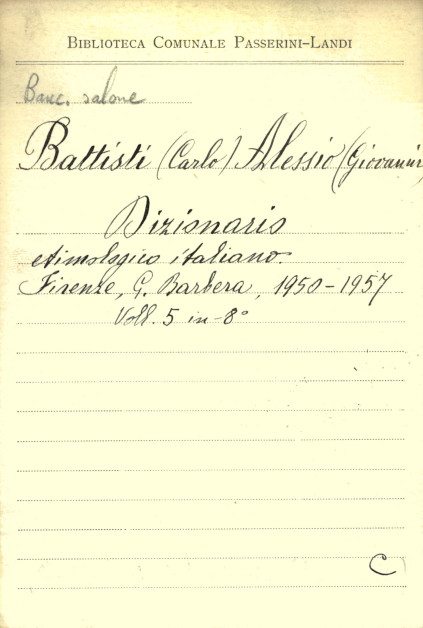 BIBLIOTECA COMUNALE PASSERINI-LANDI
Banc. salone
Battisti (Carlo) Alessio (Giovanni)
Dizionario
etimologico italiano.
Firenze, G. Barbera, 1950-1957
Voll. 5 in-8°
C